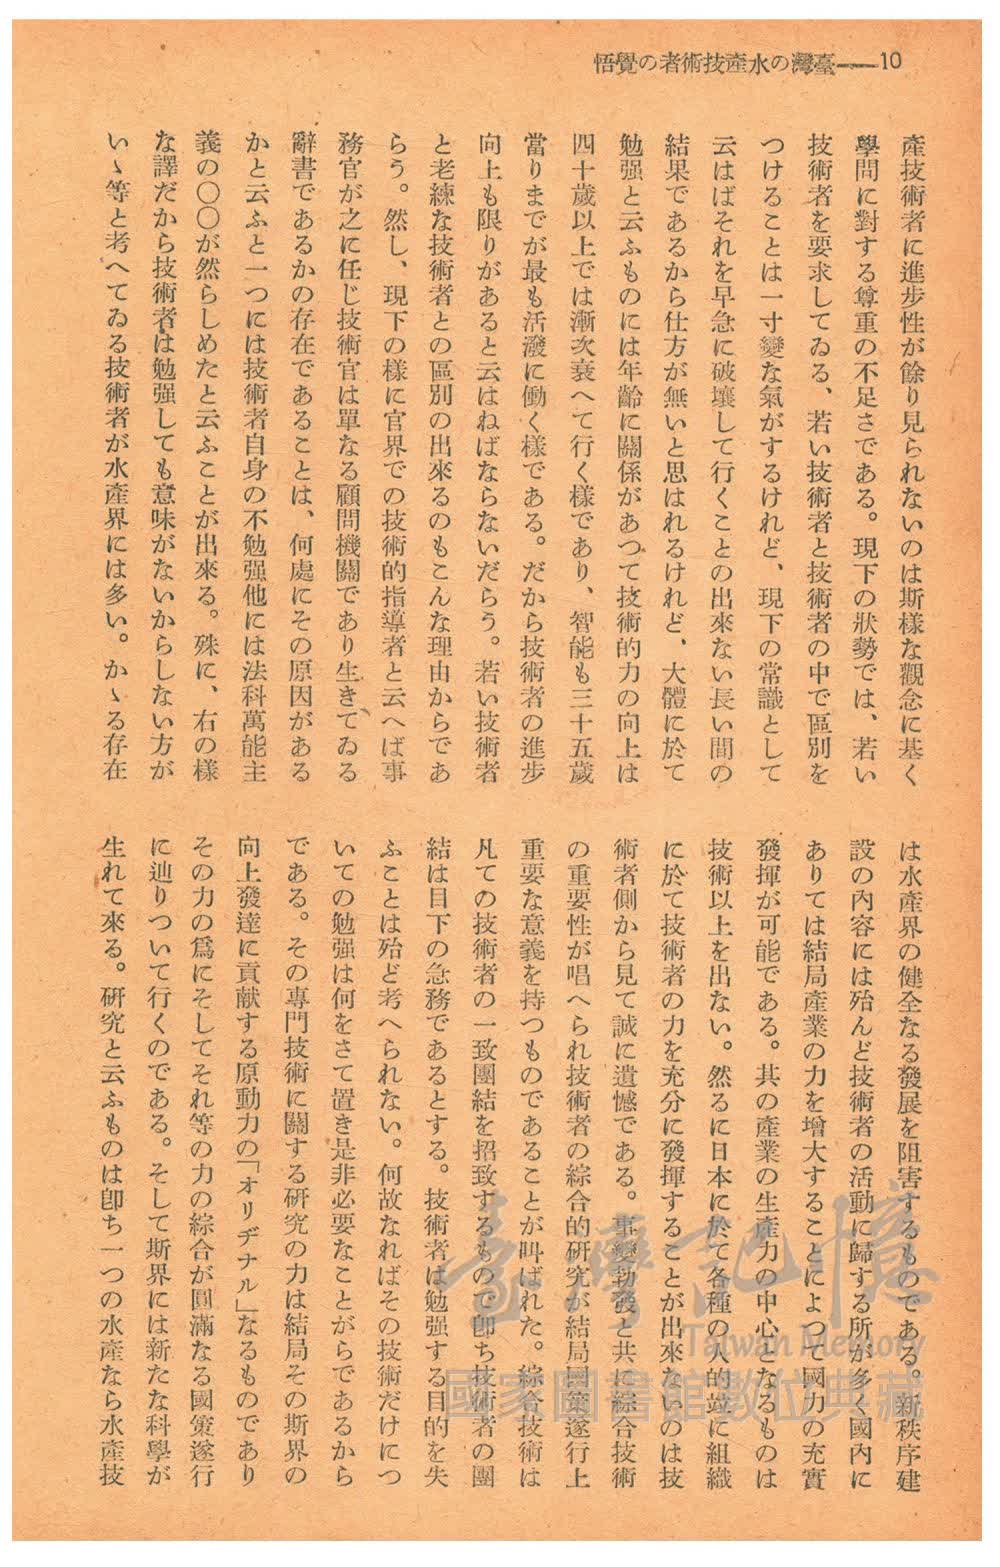 悟覺の者術技產水の灣臺——10
產技術者に進步性が餘り見られないのは斯樣な觀念に基く
學問に對する尊重の不足さである。現下の狀勢では、若い
技術者を要求してゐる、若い技術者と技術者の中で區別を
つけることは一寸變な氣がするけれど、現下の常識として
云はばそれを早急に破壞して行くことの出來ない長い間の
結果であるから仕方が無いと思はれるけれど、大體に於て
勉强と云ふものには年齡に關係があつて技術的力の向上は
四十歲以上では漸次衰へて行く樣であり、智能も三十五歲
當りまでが最も活潑に働く樣である。だから技術者の進步
向上も限りがあると云はねばならないだらう。若い技術者
と老練な技術者との區別の出來るのもこんな理由からであ
らう。然し、現下の樣に官界での技術的指導者と云へば事
務官が之に任じ技術官は單なる顧問機關であり生きてゐる
辭書であるかの存在であることは、何處にその原因がある
かと云ふと一つには技術者自身の不勉强他には法科萬能主
義の〇〇が然らしめたと云ふことが出來る。殊に、右の樣
な譯だから技術者は勉强しても意味がないからしない方が
いゝ等と考へてゐる技術者が水產界には多い。かゝる存在
は水產界の健全なる發展を阻害するものである。新秩序建
設の內容には殆んど技術者の活動に歸する所が多く國內に
ありては結局產業の力を增大することによつて國力の充實
發揮が可能である。其の產業の生產力の中心となるものは
技術以上を出ない。然るに日本に於て各種の人的竝に組織
に於て技術者の力を充分に發揮することが出來ないのは技
術者側から見て誠に遺憾である。事變勃發と共に綜合技術
の重要性が唱へられ技術者の綜合的硏究が結局國策遂行上
重要な意義を持つものであることが叫ばれた。綜合技術は
凡ての技術者の一致團結を招致するもので卽ち技術者の團
結は目下の急務であるとする。技術者は勉强する目的を失
ふことは殆ど考へられない。何故なればその技術だけにつ
いての勉强は何をさて置き是非必要なことがらであるから
である。その專門技術に關する硏究の力は結局その斯界の
向上發達に貢献する原動力の「オリヂナル」なるものであり
その力の爲にそしてそれ等の力の綜合が圓滿なる國策遂行
に辿りついて行くのである。そして斯界には新たな科學が
生れて來る。硏究と云ふものは卽ち一つの水產なら水產技
臺灣記憶
Taiwan Memory
國家圖書館數位典藏